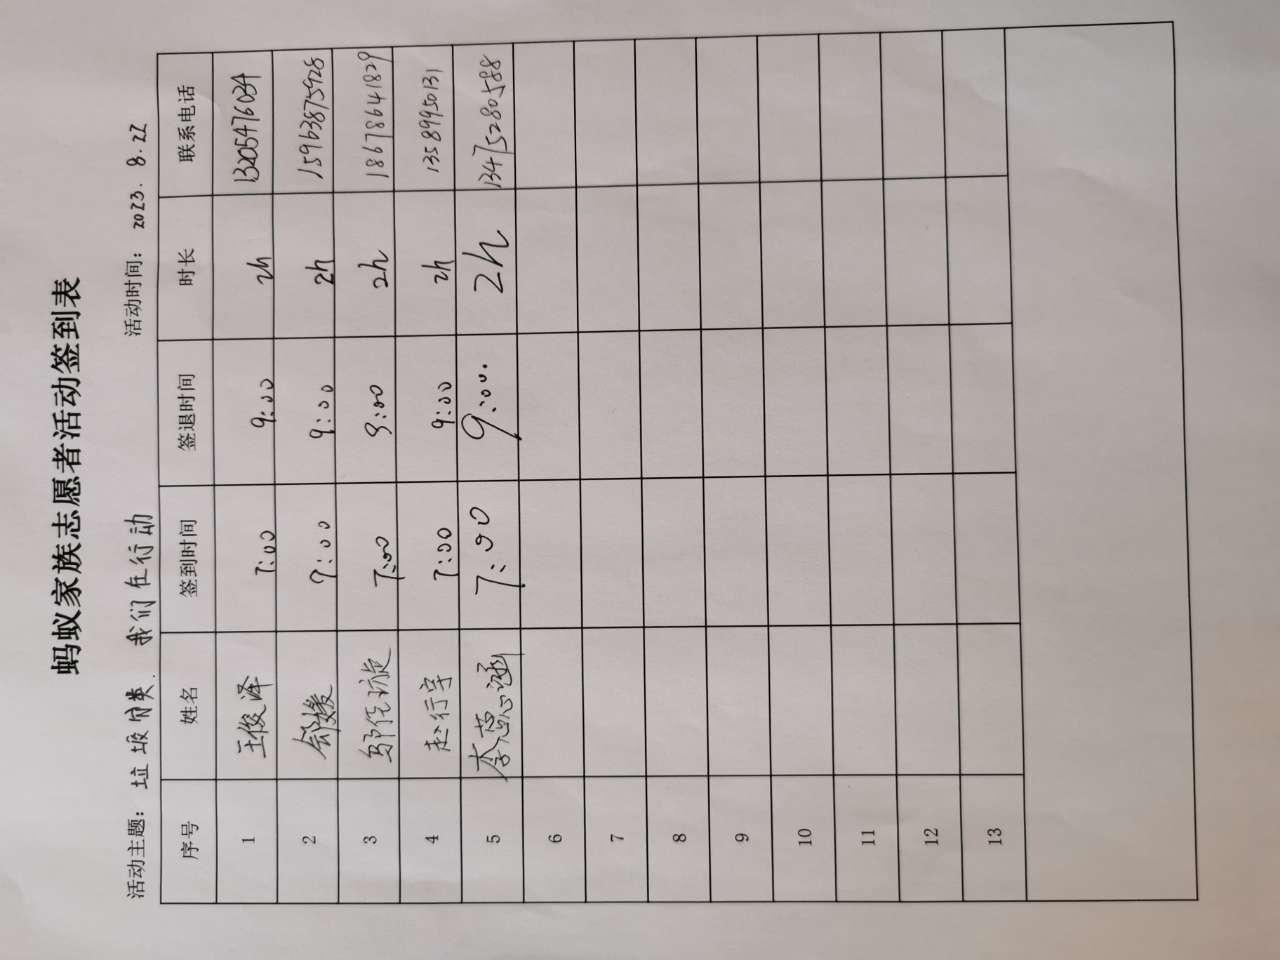 蚂蚁家族志愿者活动签到表
活动主题：垃圾分类. 我们在行动 活动时间：2023. 8. 22
序号 姓名 签到时间 签退时间 时长 联系电话
1 王俊泽 7:00 9:00 2h 13205476034
2 7:00 9:00 2h 15963875928
3 邹佳璇 7:00 9:00 2h 18678641829
4 赵行宇 7:00 9:00 2h 13589950131
5 李思涵 7:00 9:00. 2h 13475280588
6
7
8
9
10
11
12
13